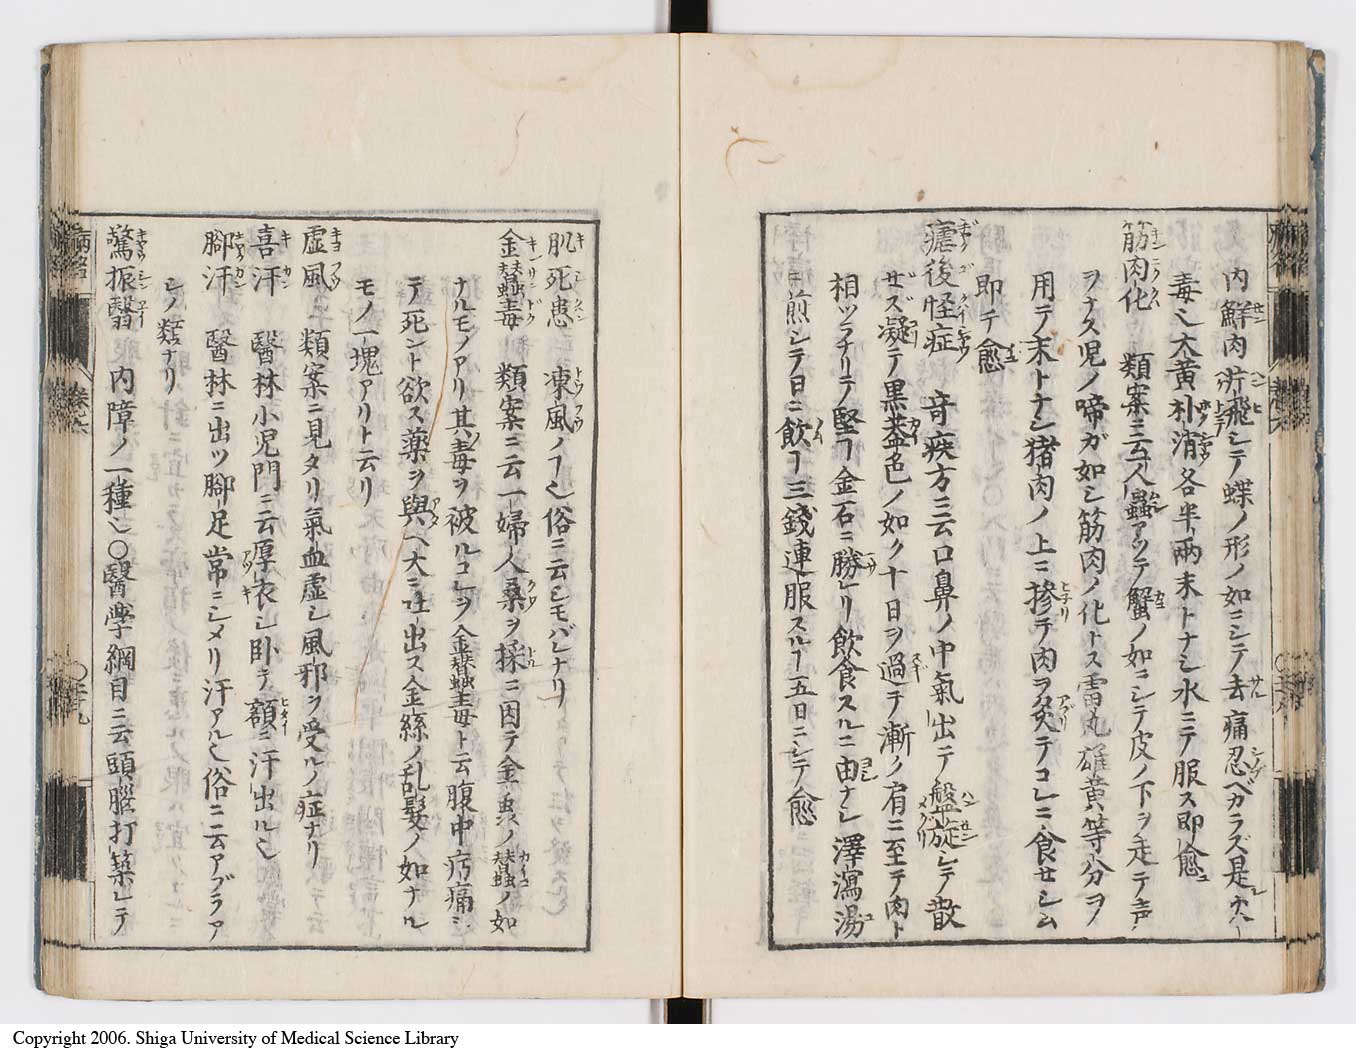 内鮮肉片飛シテ蝶ノ形ノ如ニシテ去痛忍ベカラズ是
毒也大黄朴消各半両末トナシ水ニテ服ス即愈
筋肉化　類案ニ云人蟲アツテ蟹ノ如ニシテ皮ノ下ヲ走テ声
ヲナス児ノ啼ガ如シ筋肉ノ化トス雷丸雄黄等分ヲ
用テ末トナシ猪肉ノ上ニ掺テ肉ヲ炙テコレニ食セシム
即テ愈
瘧後怪症　奇疾方ニ云口鼻ノ中氣出テ盤旋シテ散
ゼズ凝テ黒蓋色ノ如ク十日ヲ過テ漸ク肩ニ至テ肉ト
相ツラナリテ堅ヿ金石ニ勝レリ飲食スルニ由ナシ澤瀉湯
煎シテ日ニ飲ヿ三錢連服スルヿ五日ニシテ愈
病名
卷六
肌死患　凍風ノヿ也俗ニ云シモバレナリ
金蠶毒　類案ニ云一婦人桑ヲ採ニ因テ金色ノ蠶ノ如
ナルモノアリ其毒ヲ被ルコレヲ金蠶毒ト云腹中㽲痛シ
テ死ント欲ス薬ヲ與ヘ大ニ吐出ス金絲ノ乱髮ノ如ナル
モノ一塊アリト云リ
虚風　類案ニ見タリ氣血虚シ風邪ヲ受ルノ症ナリ
喜汗　醫林小児門ニ云厚衣シ卧テ額ニ汗出ル也
腳汗　醫林ニ出ツ腳足常ニシメリ汗アル也俗ニ云アブラア
シノ類ナリ
驚振翳　内障ノ一種也〇醫学綱目ニ云頭腦打築シテ